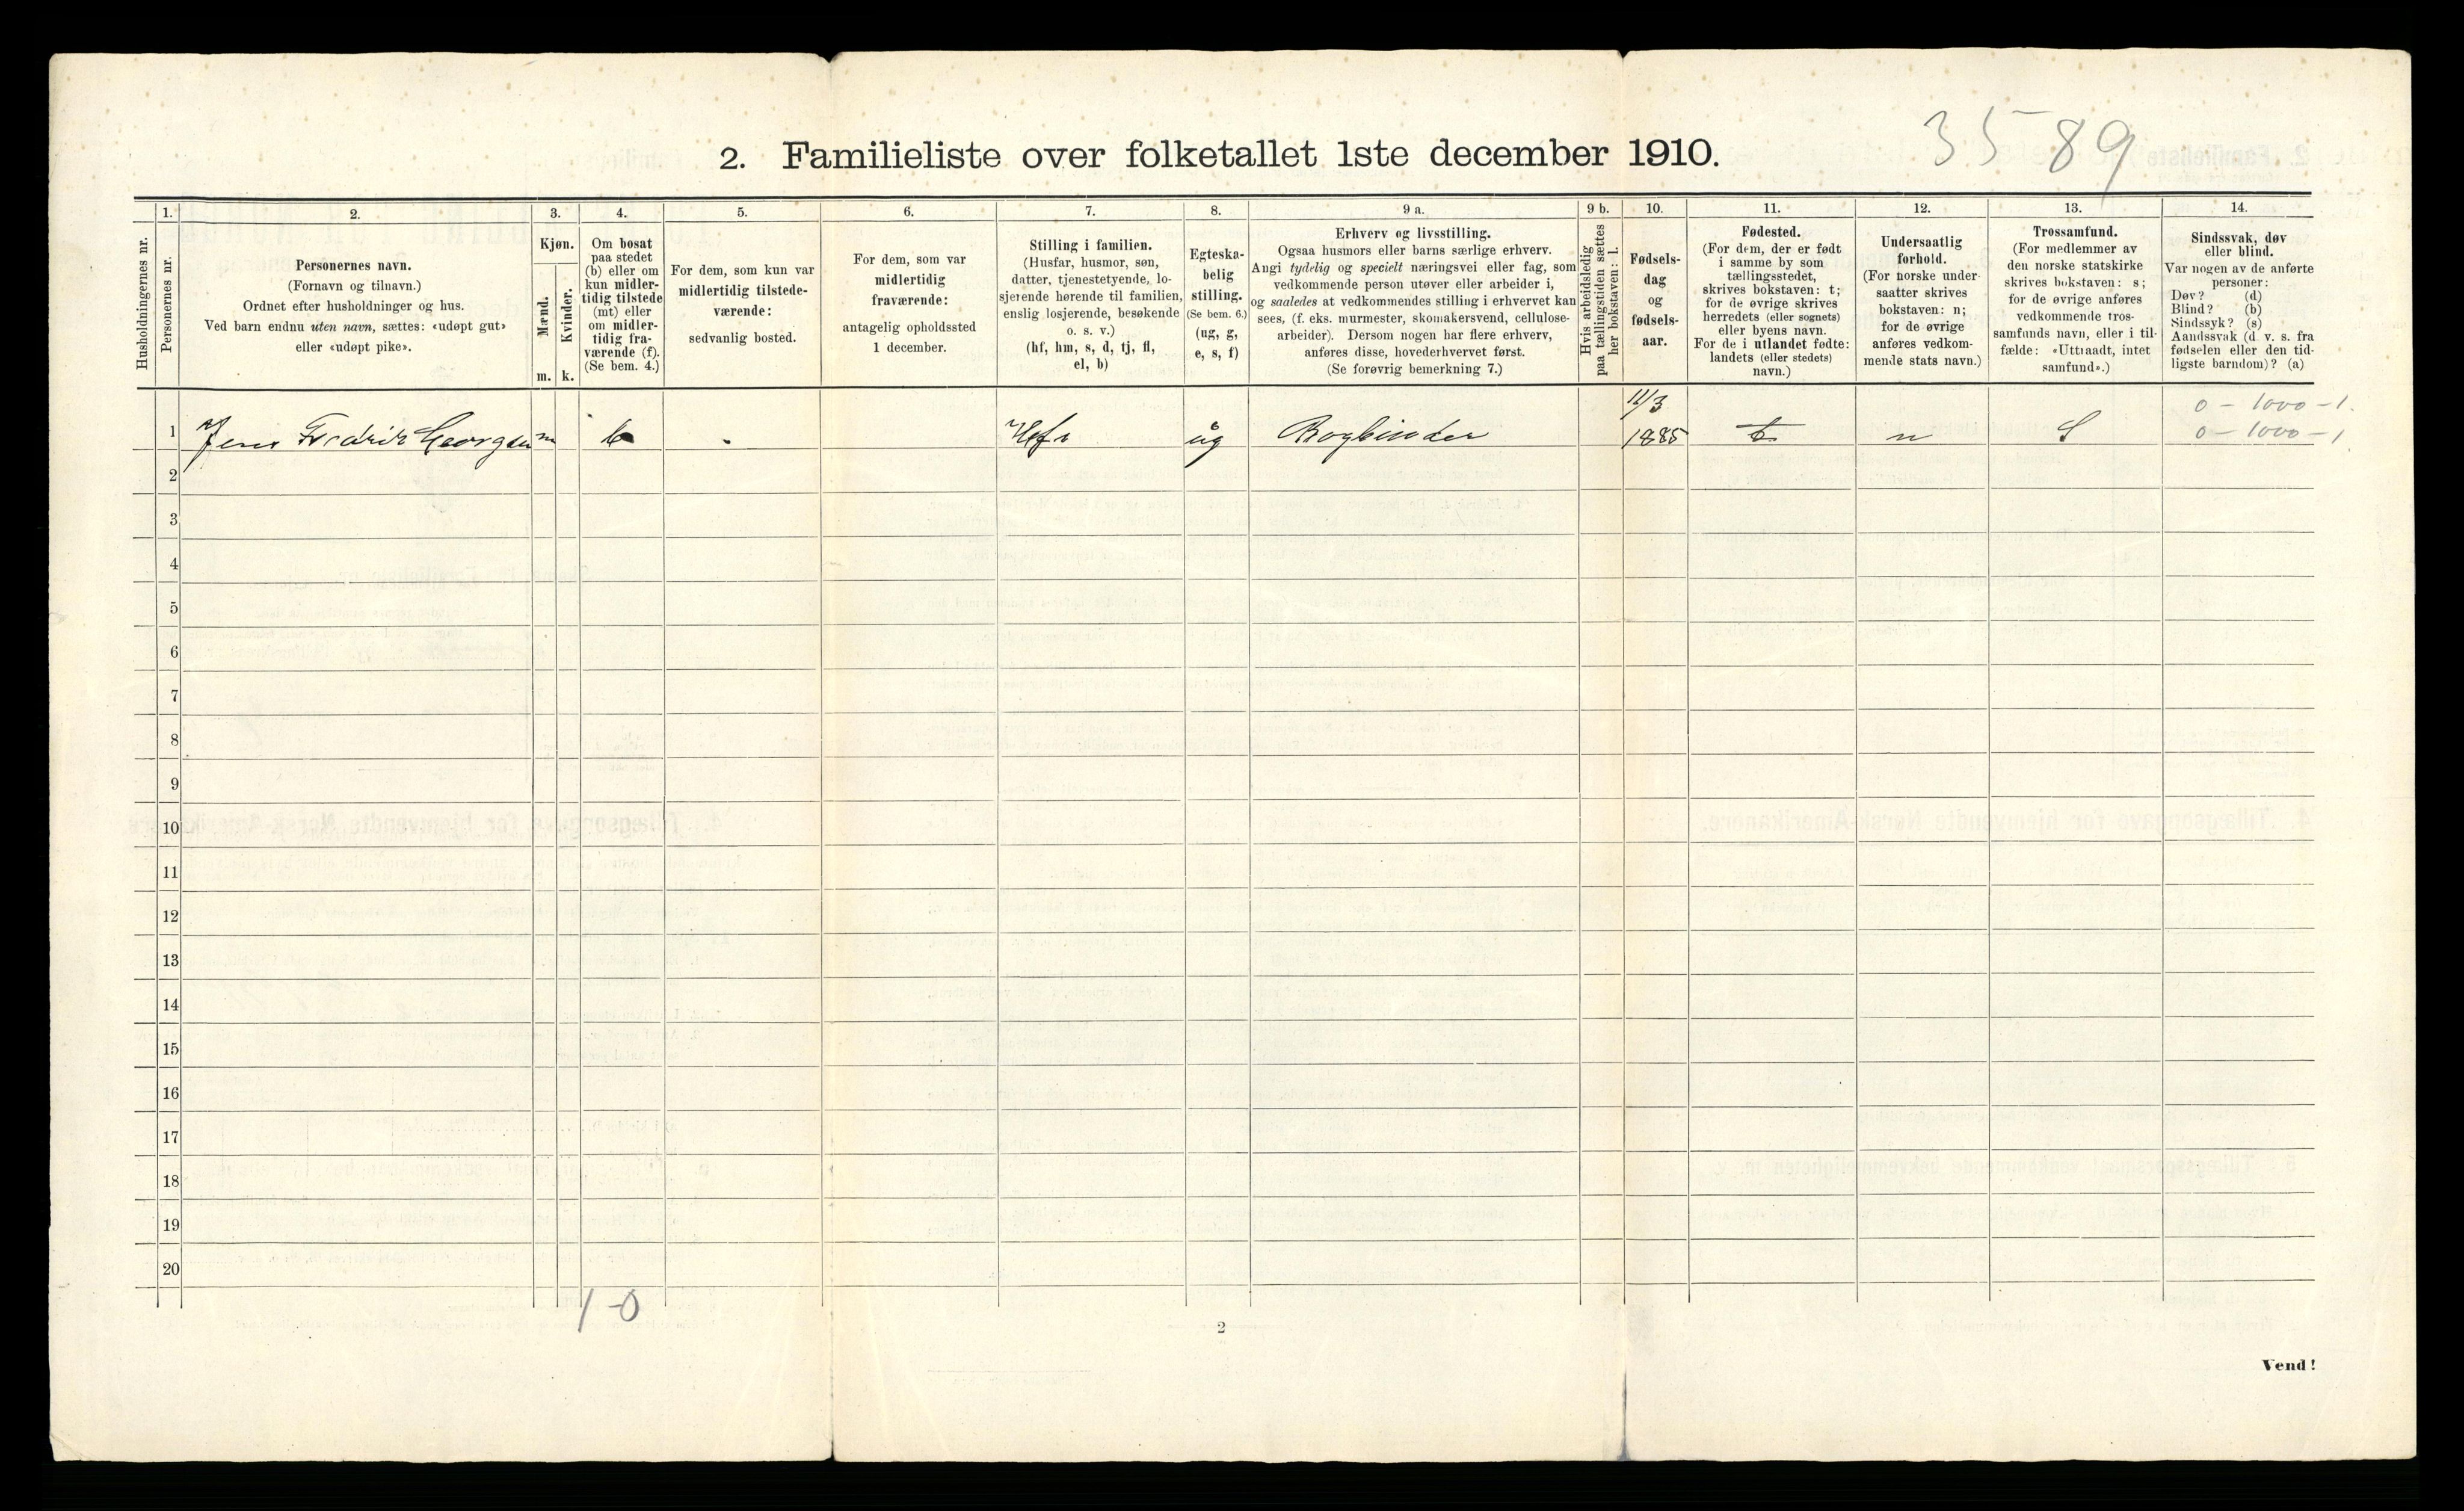 3589
2. Familieliste over folketallet 1ste december 1910.
Husholdningernes nr.
1.
Personernes nr.
2.
Personernes navn.
(Fornavn og tilnavn.)
Ordnet efter husholdninger og hus.
Ved barn endnu uten navn, sættes: «udøpt gut»
eller «udøpt pike».
3.
Kjøn.
Mænd.
Kvinder.
m. k.
4.
Om bosat
paa stedet
(b) eller om
kun midler-
tidig tilstede
(mt) eller
om midler-
tidig fra-
værende (f).
(Se bem. 4.)
5.
For dem, som kun var
midlertidig tilstede-
værende:
sedvanlig bosted.
6.
For dem, som var
midlertidig
fraværende:
antagelig opholdssted
1 december.
7.
Stilling i familien.
(Husfar, husmor, søn,
datter, tjenestetyende, lo-
sjerende hørende til familien,
enslig losjerende, besøkende
o. s. v.)
(hf, hm, s, d, tj, fl,
el, b)
8.
Egteska-
belig
stilling.
(Se bem. 6.)
(ug, g,
e, s, f)
9 a.
Erhverv og livsstilling.
Ogsaa husmors eller barns særlige erhverv.
Angi tydelig og specielt næringsvei eller fag, som
vedkommende person utøver eller arbeider i,
og saaledes at vedkommendes stilling i erhvervet kan
sees, (f. eks. murmester, skomakersvend, cellulose-
arbeider). Dersom nogen har flere erhverv,
anføres disse, hovederhvervet først.
(Se forøvrig bemerkning 7.)
9 b.
Hvis arbeidsledig
paa tællingstiden sættes
her bokstaven: l.
10.
Fødsels-
dag
og
fødsels-
aar.
11.
Fødested.
(For dem, der er født
i samme by som
tællingsstedet,
skrives bokstaven: t;
for de øvrige skrives
herredets (eller sognets)
eller byens navn.
For de i utlandet fødte:
landets (eller stedets)
navn.)
12.
Undersaatlig
forhold.
(For norske under-
saatter skrives
bokstaven: n;
for de øvrige
anføres vedkom-
mende stats navn.)
13.
Trossamfund.
(For medlemmer av
den norske statskirke
skrives bokstaven: s;
for de øvrige anføres
vedkommende tros-
samfunds navn, eller i til-
fælde: «Uttraadt, intet
samfund».)
14.
Sindssvak, døv
eller blind.
Var nogen av de anførte
personer:
Døv? (d)
Blind? (b)
Sindssyk? (s)
Aandssvak (d. v. s. fra
fødselen eller den tid-
ligste barndom)? (a)
11/3 0 - 1000 - 1.
1 Jens Fredrik Georgsen m b Hf ug Bogbinder 1885 t n S 0 - 1000 - 1
2
3
4
5
6
7
8
9
10
11
12
13
14
15
16
17
18
19
20
1-0
2
Vend!